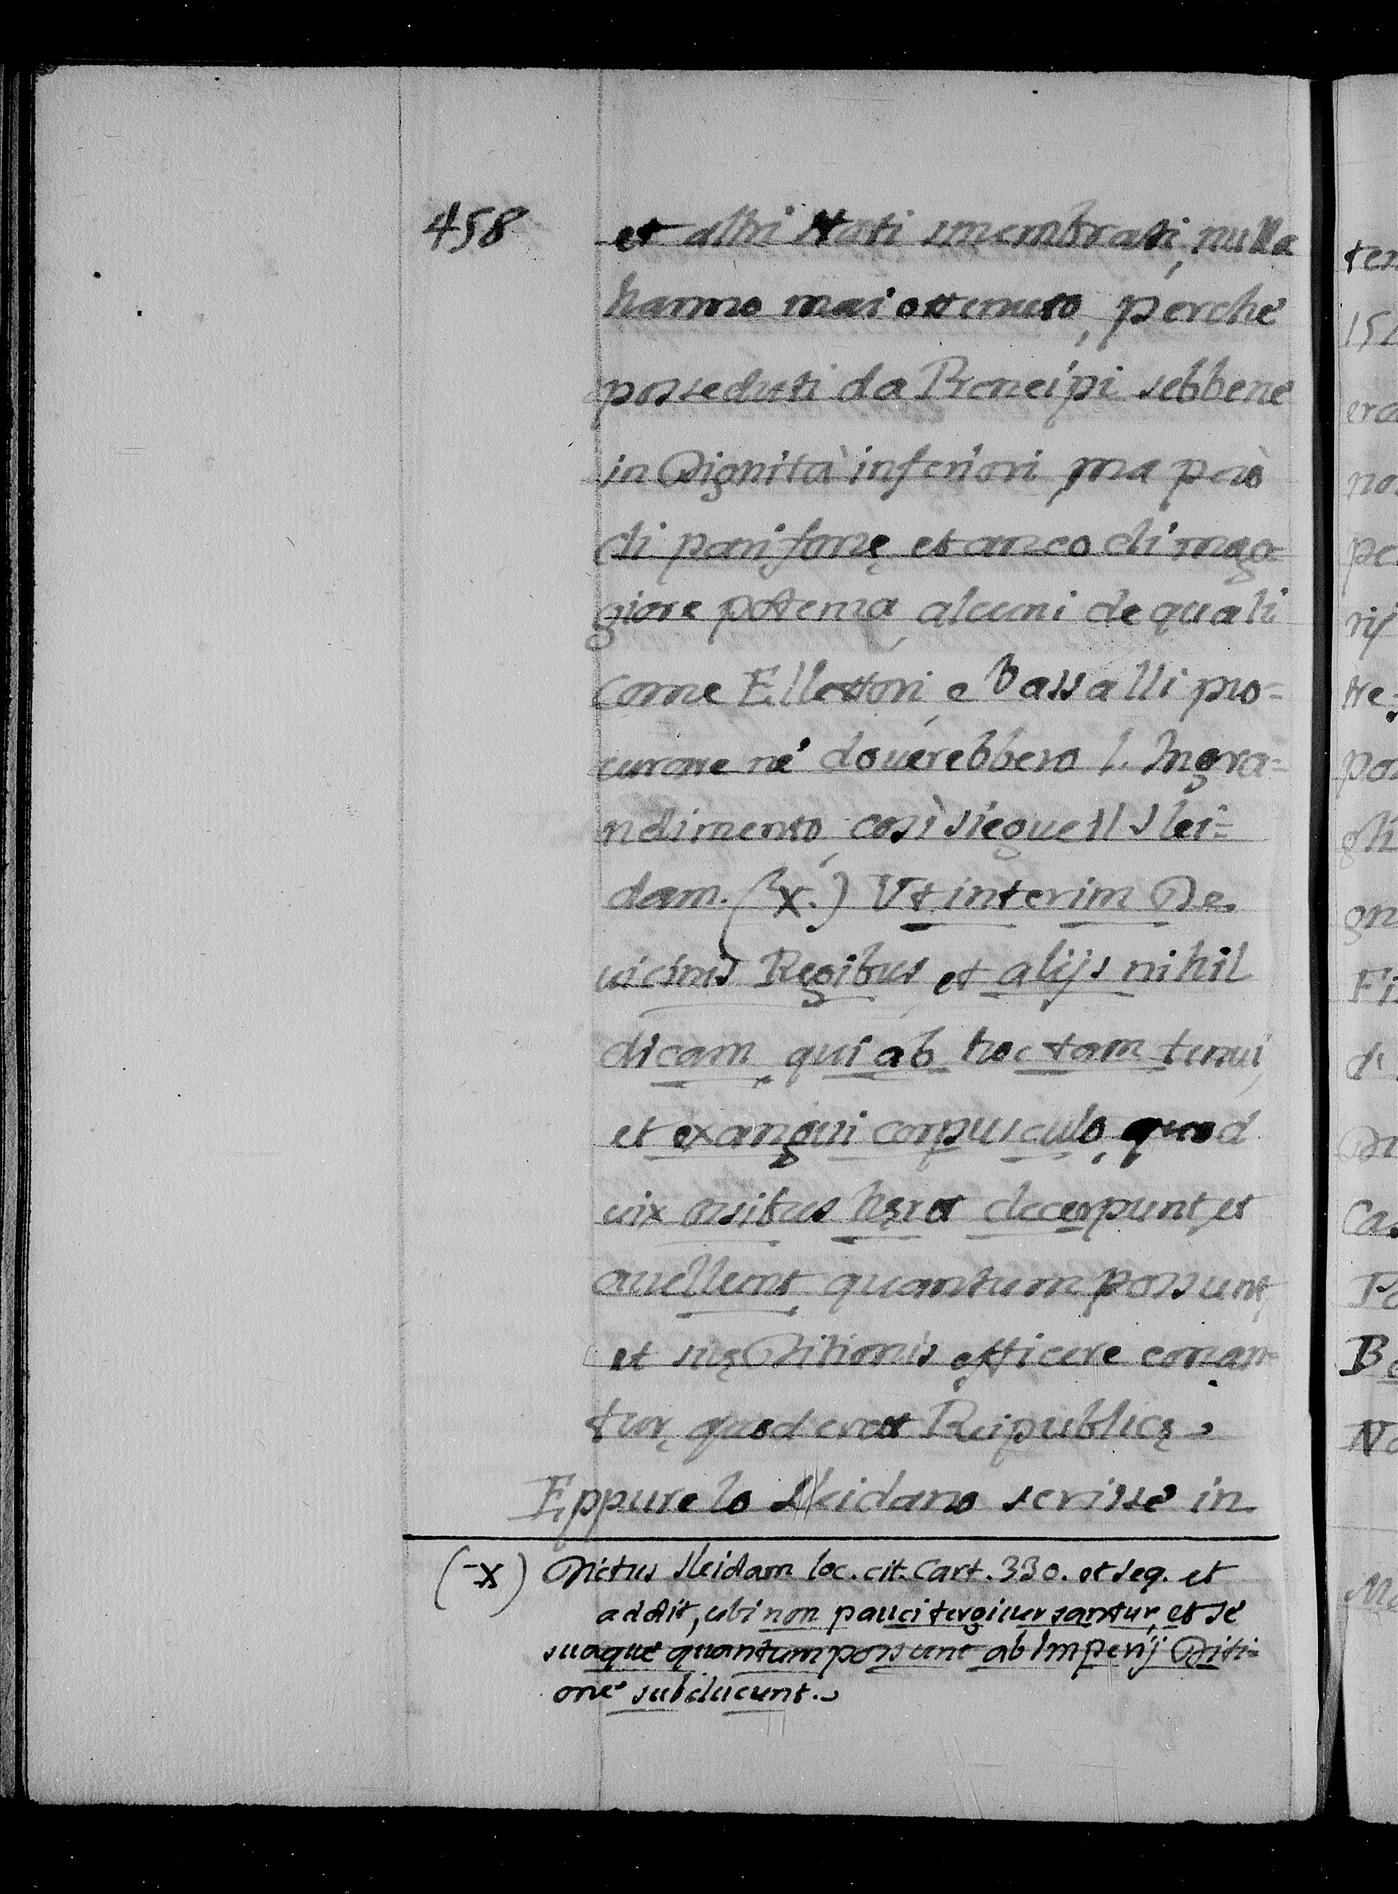 458
et altri Stati smembrati, nulla
hanno mai ottenuto, perche
posseduti da Prencipi sebbene
in Dignità inferiori, ma però
di pari forze, et anco di mag=
giore potenza, alcuni de quali
come Ellettori, e Vassalli pro=
curare né douerebbero l'Ingra=
ndimento, così siegue Il Slei=
dam. (X.) Vt interim De
uicinis Regibus, et alijs nihil
dicam, qui ab hoc tam tenui,
et exangui corpusculo, quod
uix ossibus hęret decerpunt, et
auellunt quantum possunt,
et suę Ditionis efficere conan=
tur, quod erat Reipublicę.
Eppure lo Sleidano scrisse in
(X) Dictus Sleidam loc. cit. Cart. 330. et seq. et
addit, ubi non pauci tergiuersantur, et se
suaque quantum possunt ab Imperij Diti=
one subducunt.
ter
152
era
no
pe
rif
tre
po
gli
gn
Fi
di
Ca
B